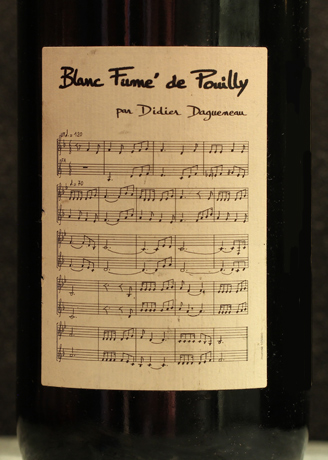 Blanc Fumé de Pouilly
par Didier Dagueneau